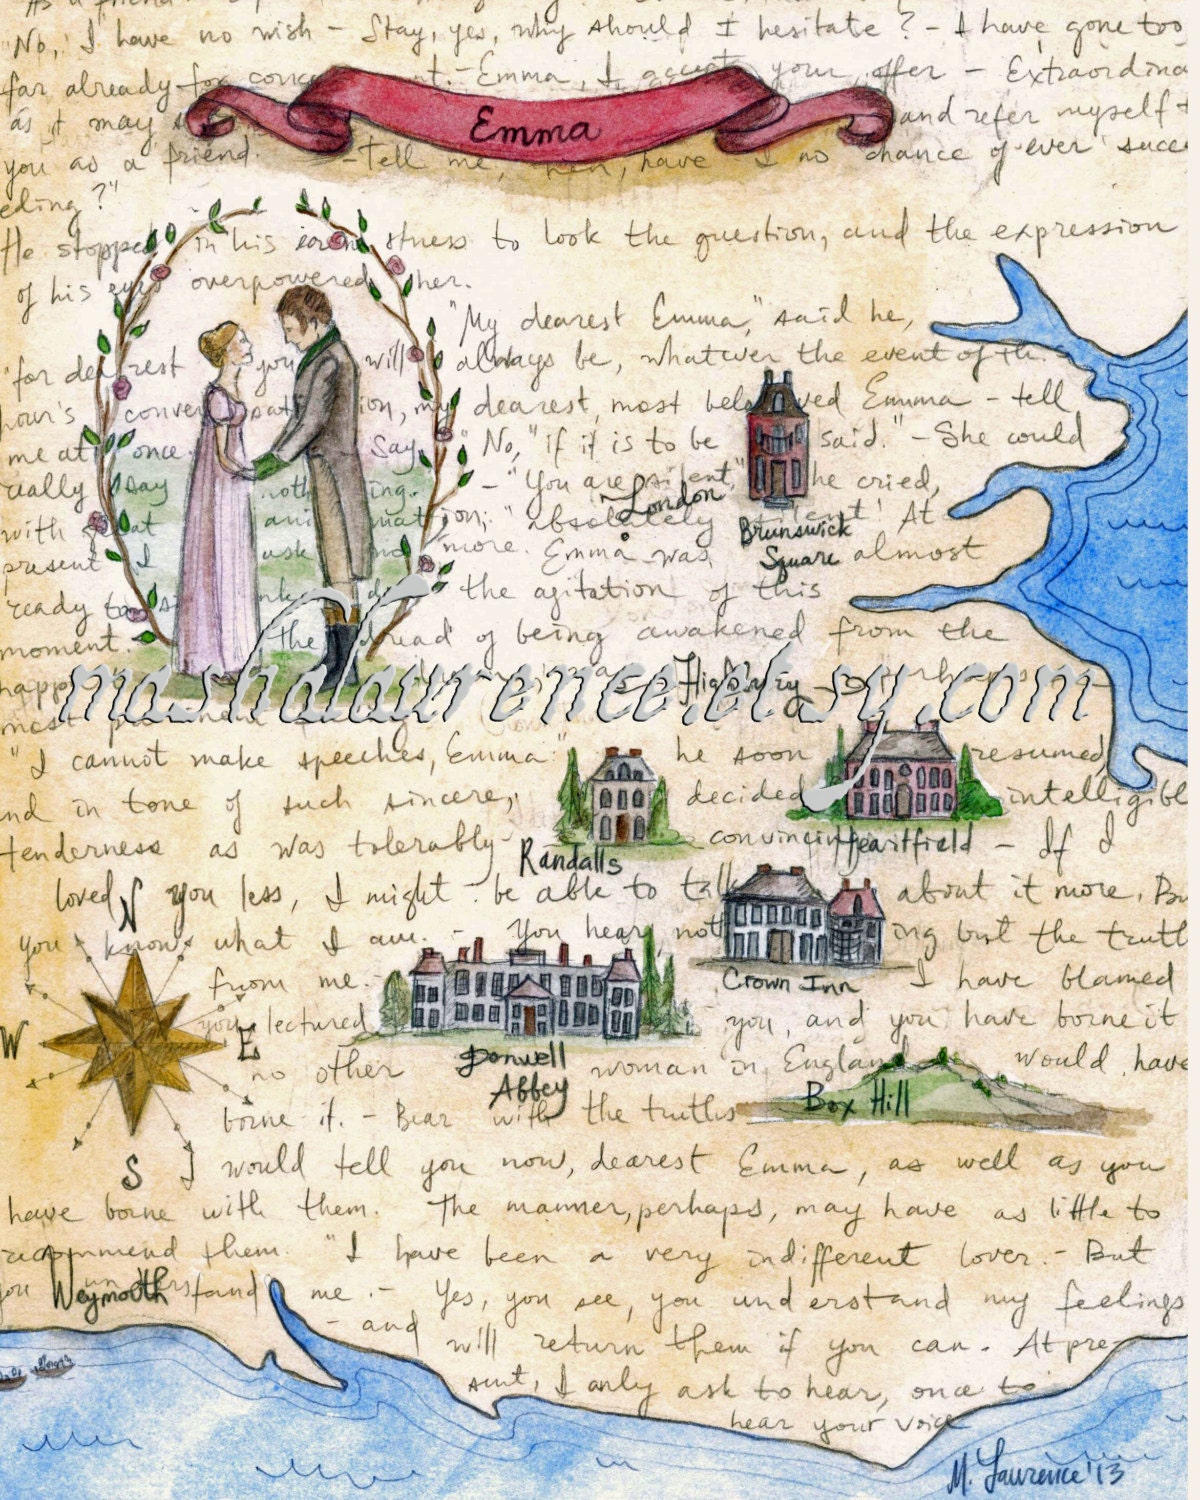 As a friend
"No, I have no wish – Stay, yes, why should I hesitate? – I have gone too
far already for conce nt. – Emma, I accept your offer – Extraordina
as it may and refer myself t
you as a friend. – tell me, then, have I no chance of ever succe
eding?"
Emma
He stopped in his earnestness to look the question, and the expression
of his eyes overpowered her.
"My dearest Emma," said he,
"for dearest you will always be, whatever the event of th
hour's conversation, my dearest, most beloved Emma – tell
me at once. Say "No," if it is to be said." – She could
really say nothing. – "You are silent," he cried,
with great animation; "absolutely silent! At
present I ask no more. Emma was almost
ready to sink the agitation of this
moment. the dread of being awakened from the
happ perhaps
most
London
Brunswick
Square
Highbury
mashalaurence.etsy.com
"I cannot make speeches, Emma" he soon resumed,
nd in tone of such sincere, decided intelligibl
tenderness as was tolerably convincing – If I
Randalls
Heartfield
loved you less, I might be able to talk about it more. Bu
you know what I am. – You hear nothing but the truth
from me. – I have blamed
Crown Inn
you, lectured you, and you have borne it
no other woman in England would have
Donwell
Abbey
Box Hill
borne it. – Bear with the truths
N
W
E
S
I would tell you now, dearest Emma, as well as you
have borne with them. The manner, perhaps, may have as little to
recommend them. "I have been a very indifferent lover. – But
you understand me. – Yes, you see, you understand my feelings
Weymouth
– and will return them if you can. At pre–
sent, I only ask to hear, once to
hear your voice
M. Laurence '13